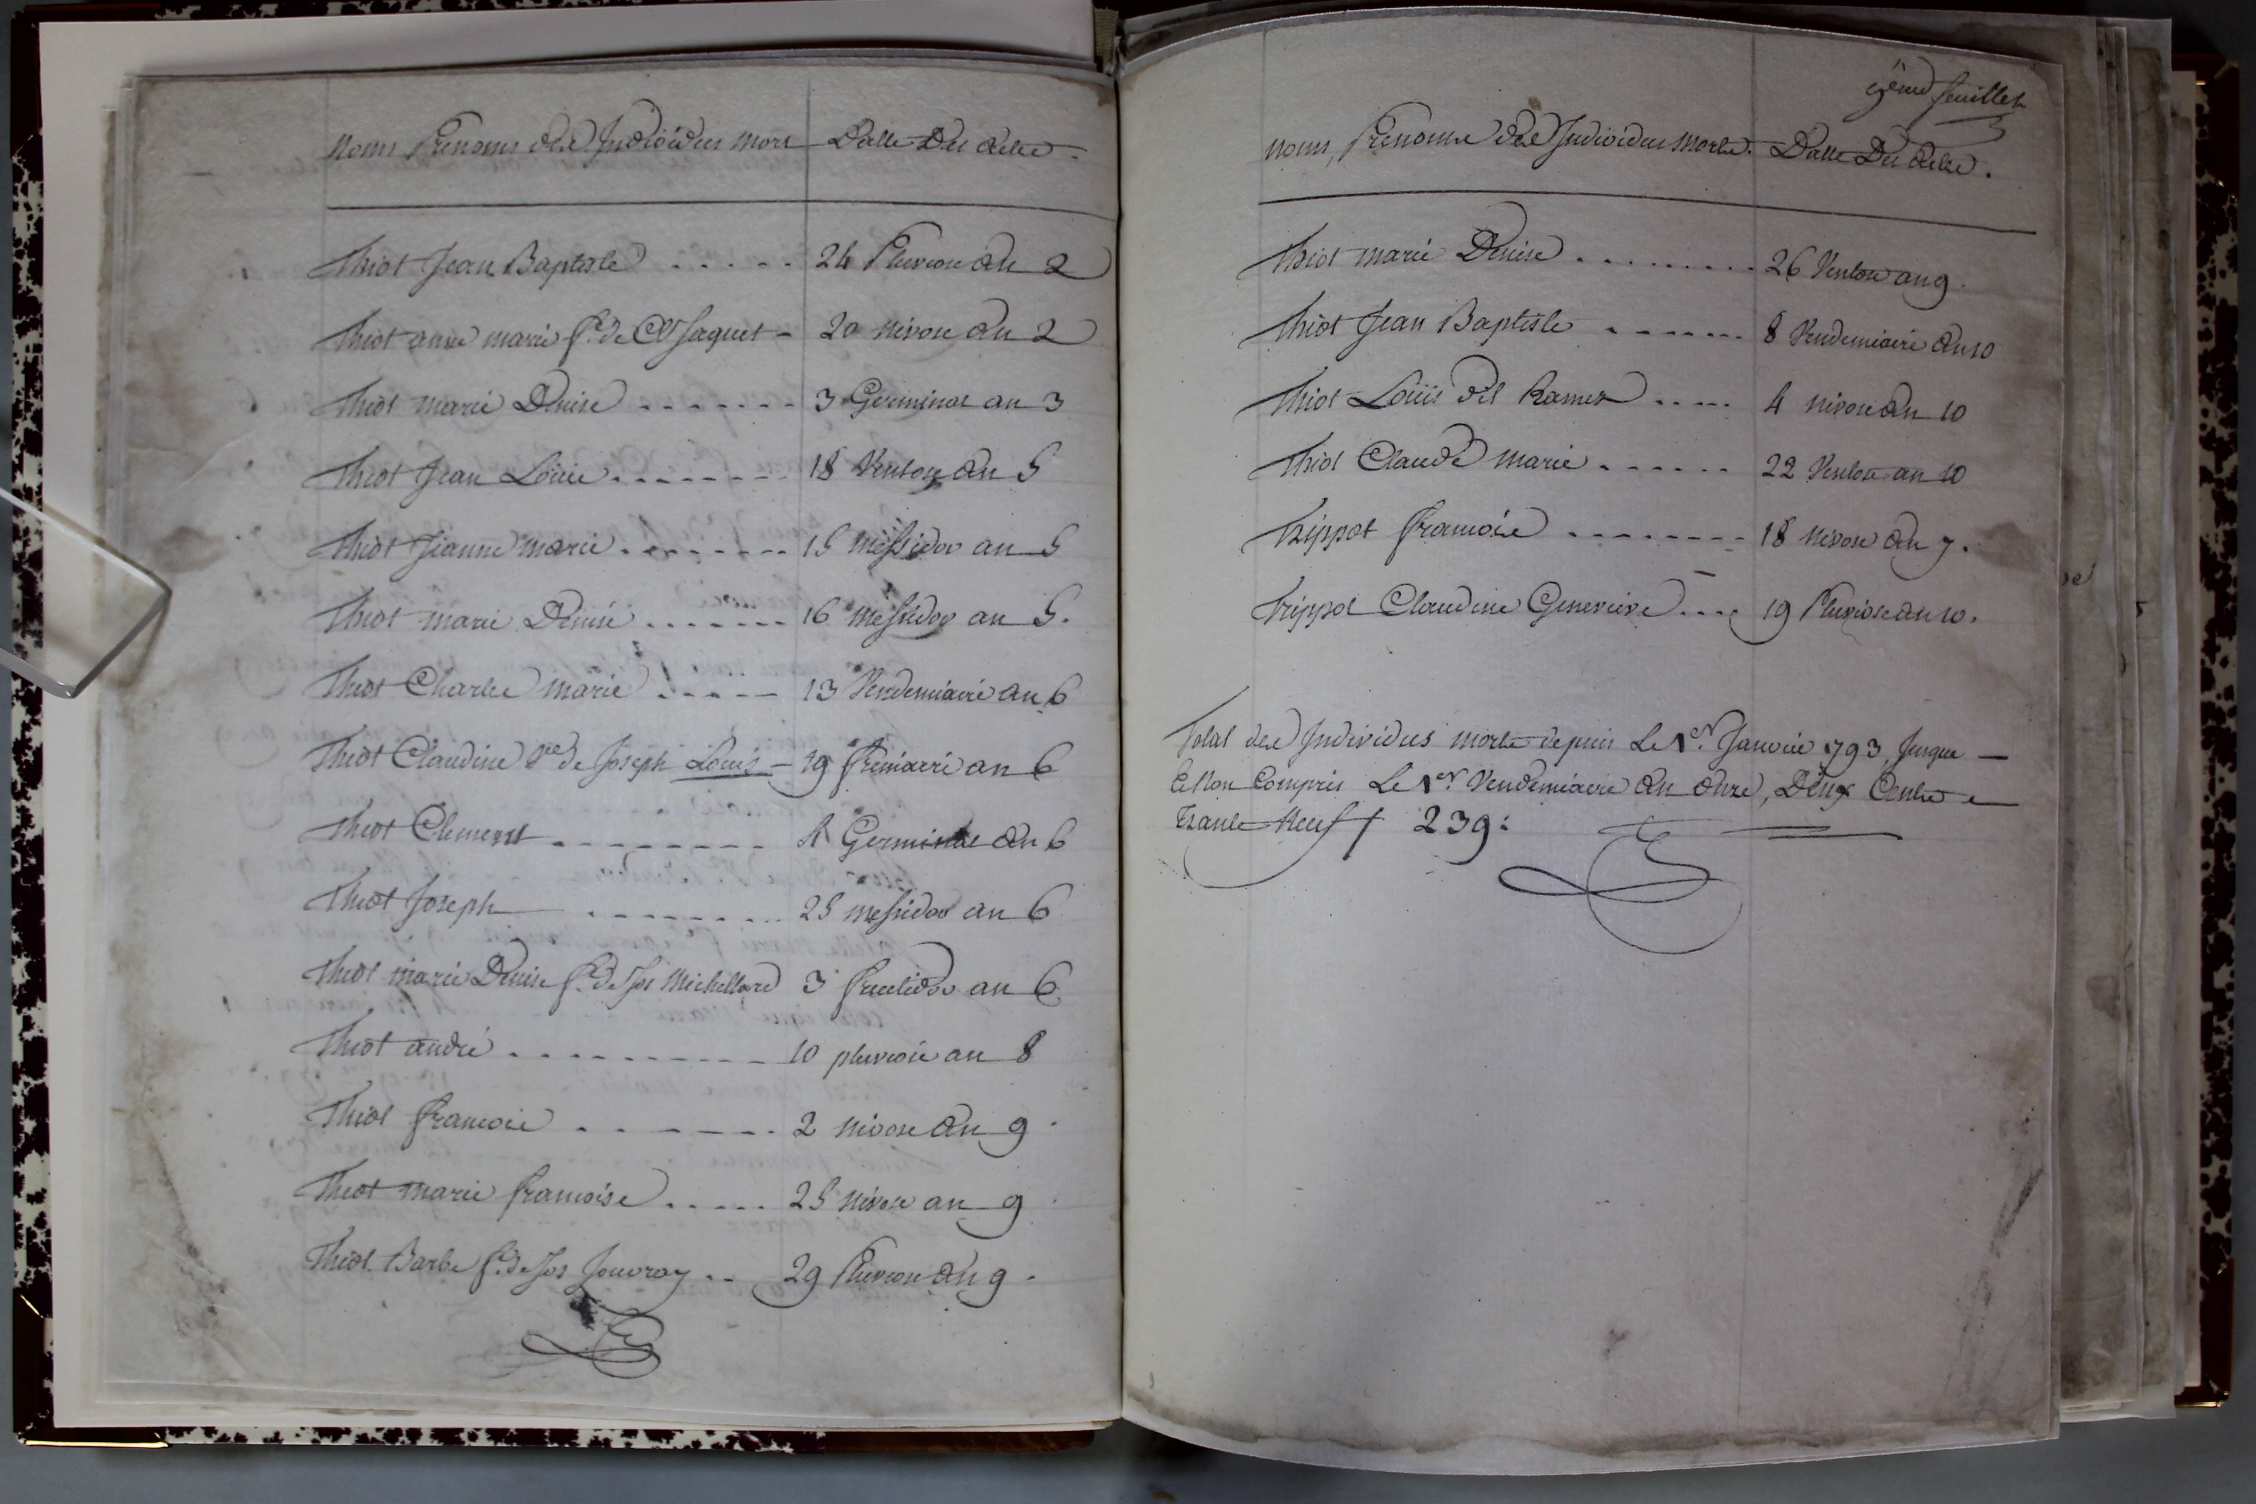 Noms Prenoms des Individus mort Datte Des actes.
Thiot Jean Baptiste ..... 24 Pluviose an 2
Thiot anne marie fe. de Cl Jaquet - 20 nivose an 2
Thiot marie Denise ....... 3 Germinal an 3
Thiot Jean Louis ........ 18 Ventose an 5
Thiot Jeanne marie ........ 15 Messidor an 5
Thiot marie Denise ....... 16 Messidor an 5.
Thiot Charles marie ..... 13 Vendemiaire an 6
Thiot Claudine Vve de Joseph Louis - 19 frimaire an 6
Thiot Clement ........ 4 Germinal an 6
Thiot Joseph ........ 25 messidor an 6
Thiot marie Denise fe. de Jos Michellard 3 fructidor an 6
Thiot andré .......... 10 pluviose an 8
Thiot francois ....... 2 nivose an 9.
Thiot marie francoise ..... 25 nivose an 9
Thiot Barbe fe. de Jos Jouvray .. 29 Pluviose an 9.
9eme feuillet
Noms, Prenoms des Individus morts. Datte Des actes.
Thiot marie Denise ......... 26 Ventose an 9.
Thiot Jean Baptiste ....... 8 Vendemiaire an 10
Thiot Louis dit Ramer ..... 4 nivose an 10
Thiot Claude marie ...... 22 Ventose an 10
Trippot francois ........ 18 nivose an 7.
Trippot Claudine Genevieve .... 19 Pluviose an 10.
Total des Individus morts depuis Le 1er. Janvier 1793, Jusque
et Non Compris Le 1er. Vendemiaire an onze, Deux Cents
Trante Neuf 239: